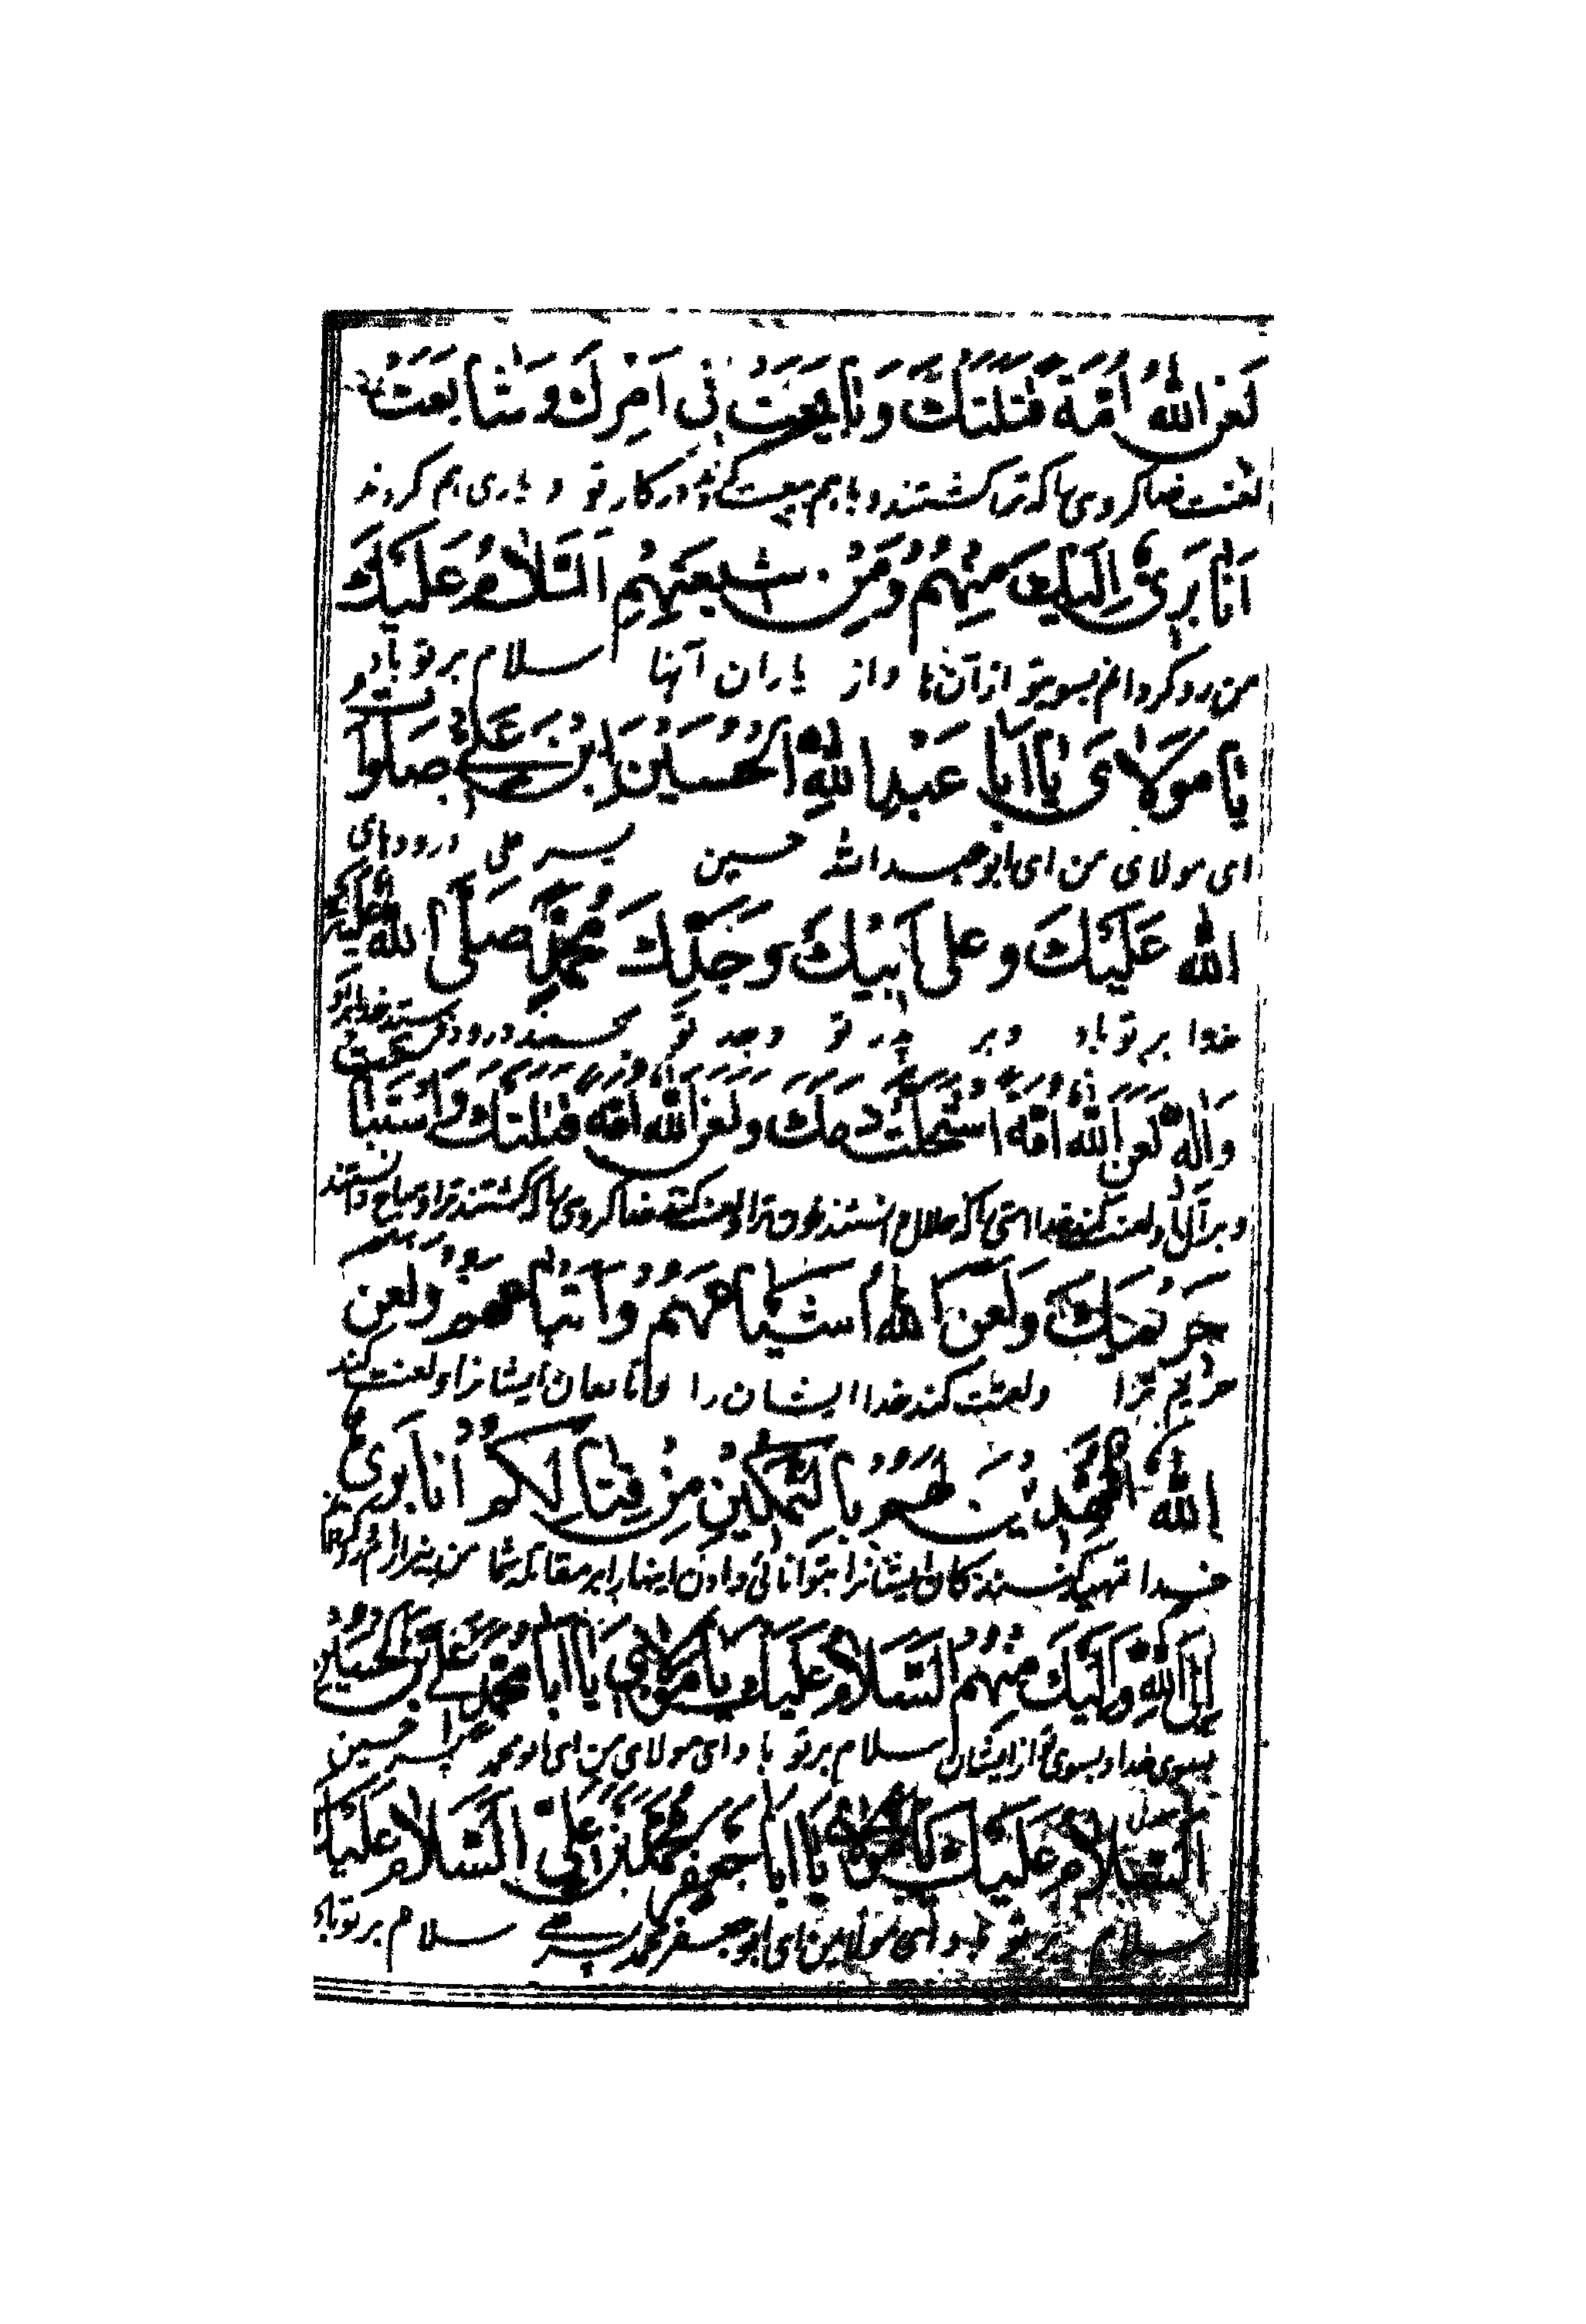 لَعَنَ اللهُ اُمَّةً قَتَلَتْكَ وَبَايَعَتْ فِي اَمْرِكَ وَشَايَعَتْ
لعنت خدا گروهی را که ترا کشتند و باهم بیعت کردند در کار تو و یاری هم کردند
اَنَا بَرِیْءٌ اِلَیْكَ مِنْهُمْ وَمِنْ شِیعَتِهِمْ اَلسَّلَامُ عَلَیْكَ
من رو گردانم بسوی تو از آنها و از یاران آنها سلام بر تو باد
یَا مَوْلَایَ یَا اَبَا عَبْدِ اللهِ الْحُسَیْنَ ابْنَ عَلِیٍّ صَلَوَاتُ
ای مولای من ای ابو عبد الله حسین پسر علی درودهای
اللهِ عَلَیْكَ وَعَلی اَبِیْكَ وَجَدِّكَ مُحَمَّدٍ صَلَّی اللهُ عَلَیْهِ
خدا بر تو باد و بر پدر تو وجد تو محمد درود فرستد خدا بر او
وَاٰلِهٖ لَعَنَ اللهُ اُمَّةً اسْتَحَلَّتْ دَمَكَ وَلَعَنَ اللهُ اُمَّةً قَتَلَتْكَ وَاسْتَبَاحَتْ
و بر آل او لعنت کند خدا امتی را که حلال دانستند خون ترا و لعنت کند خدا گروهی را که کشتند ترا و مباح دانستند
حَرِیمَكَ وَلَعَنَ اللهُ اَشْیَاعَهُمْ وَاَتْبَاعَهُمْ وَلَعَنَ
حریم ترا ولعنت کند خدا ایشان را و تابعان ایشانرا و لعنت کند
اللهُ الْمُمَهِّدِیْنَ لَهُمْ بِالتَّمْکِیْنِ مِنْ قِتَالِكُمْ اَنَا بَرِیْءٌ
خدا تهیه کنندگان ایشانرا بتوانائی دادن اینها را بر مقاتله شما من بیزارم
اِلَی اللهِ وَاِلَیْكَ مِنْهُمْ اَلسَّلَامُ عَلَیْكَ یَا مَوْلَایَ یَا اَبَا مُحَمَّدٍ عَلِیَّ بْنَ الْحُسَیْنِ
بسوی خدا و بسوی تو از ایشان سلام بر تو باد ای مولای من ای ابو محمد پسر حسین
اَلسَّلَامُ عَلَیْكَ یَا مَوْلَایَ یَا اَبَا جَعْفَرٍ مُحَمَّدَ بْنَ عَلِیٍّ اَلسَّلَامُ عَلَیْكَ
سلام بر تو باد ای مولای من ای ابو جعفر محمد پسر علی سلام بر تو باد